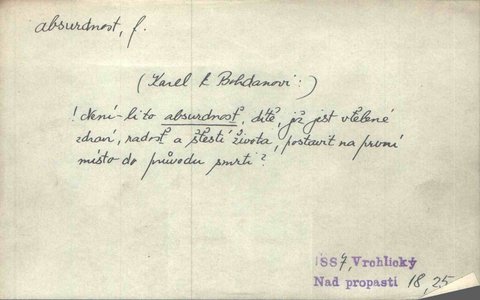 absurdnost, f.
(Karel k Bohdanovi:)
! Není-li to absurdnosť, dítě, jež jest vtělené
zdraví, radosť a štěstí života, postavit na první
místo do průvodu smrti?
SS7, Vrchlický
Nad propastí 18, 25